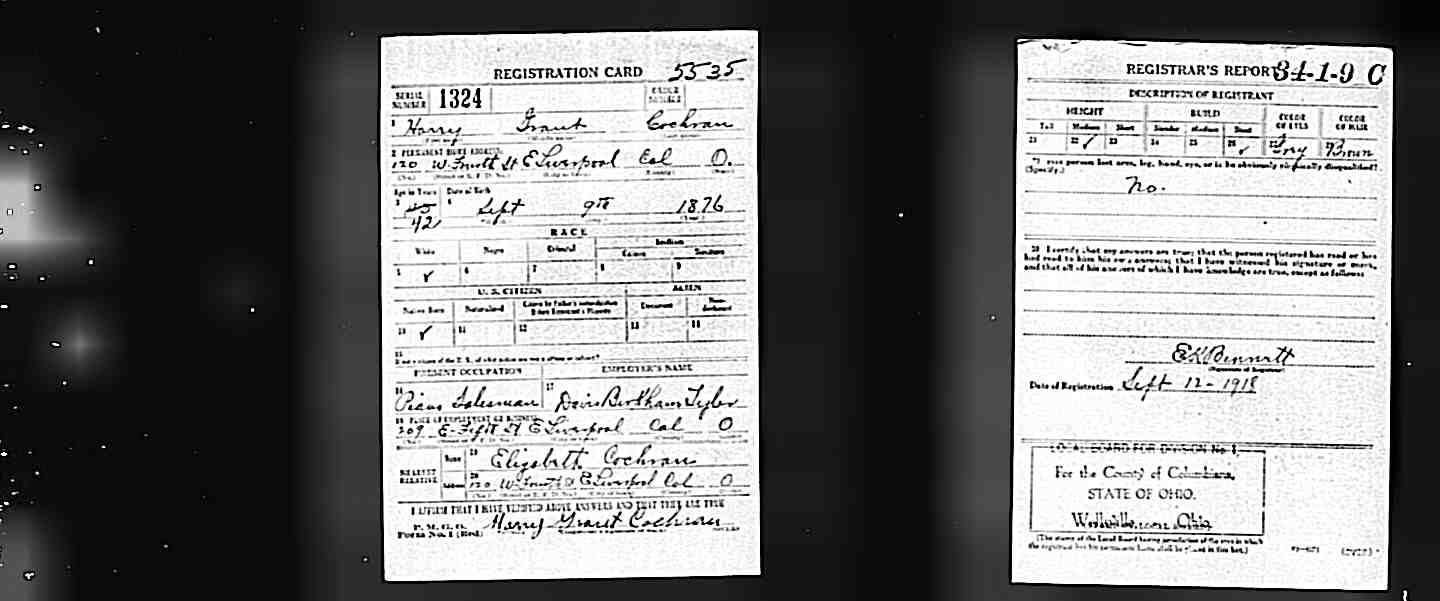 REGISTRATION CARD 5535
SERIAL NUMBER 1324 ORDER NUMBER
1 Harry Grant Cochran
2 PERMANENT HOME ADDRESS
120 W. Fourth St E Liverpool Col O.
(No.) (Street or R. F. D. No.) (City or town) (County) (State)
Age in Years Date of Birth
3 45 4 Sept 9th 1876
42 (Year)
RACE
White Negro Oriental Indian
Citizen Noncitizen
5 ✓ 6 7 8 9
U. S. CITIZEN ALIEN
Native Born Naturalized Citizen by Father's Naturalization Before Registrant's Majority Declarant Non-declarant
10 ✓ 11 12 13 14
15
If not a citizen of the U. S., of what nation are you a citizen or subject?
PRESENT OCCUPATION EMPLOYER'S NAME
16 Piano Salesman 17 Tyler
18 PLACE OF EMPLOYMENT OR BUSINESS
209 E. Fifth St E Liverpool Col O
(No.) (Street or R. F. D. No.) (City or town) (County)
NEAREST RELATIVE Name 19 Elizabeth Cochran
Address 20 120 W. Fourth St E Liverpool Col O
(No.) (Street or R. F. D. No.) (City or town) (County)
I AFFIRM THAT I HAVE VERIFIED ABOVE ANSWERS AND THAT THEY ARE TRUE
P. M. G. O.
Form No. 1 (Red) Harry Grant Cochran
REGISTRAR'S REPORT 34-1-9 C
DESCRIPTION OF REGISTRANT
HEIGHT BUILD COLOR OF EYES COLOR OF HAIR
Tall Medium Short Slender Medium Stout
21 22 ✓ 23 24 25 26 ✓ 27 Grey Brown
29 Has person lost arm, leg, hand, eye, or is he obviously physically disqualified?
(Specify.)
No.
30 I certify that my answers are true; that the person registered has read or has
had read to him his own answers; that I have witnessed his signature or mark,
and that all of his answers of which I have knowledge are true, except as follows:
E K Bennett
(Signature of Registrar)
Date of Registration Sept 12 - 1918
LOCAL BOARD FOR DIVISION No. 1,
For the County of Columbiana,
STATE OF OHIO.
Wellsville, Ohio
(The stamp of the Local Board having jurisdiction of the area in which
the registrant has his permanent home shall be placed in this box.)